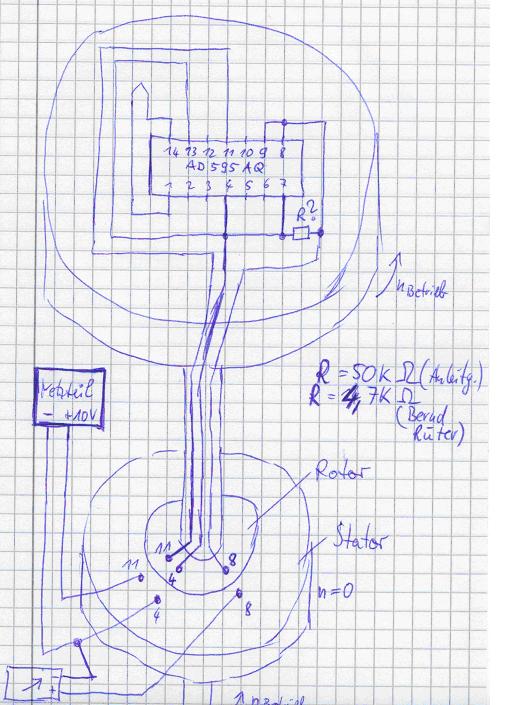 14 13 12 11 10 9 8
AD 595 AQ
1 2 3 4 5 6 7
R?
n Betrieb
R = 50K Ω (Anleitg.)
R = 4,7K Ω
(Bernd
Rüter)
Netzteil
- +10V
Rotor
Stator
11
4
8
11
4
8
n=0
- +